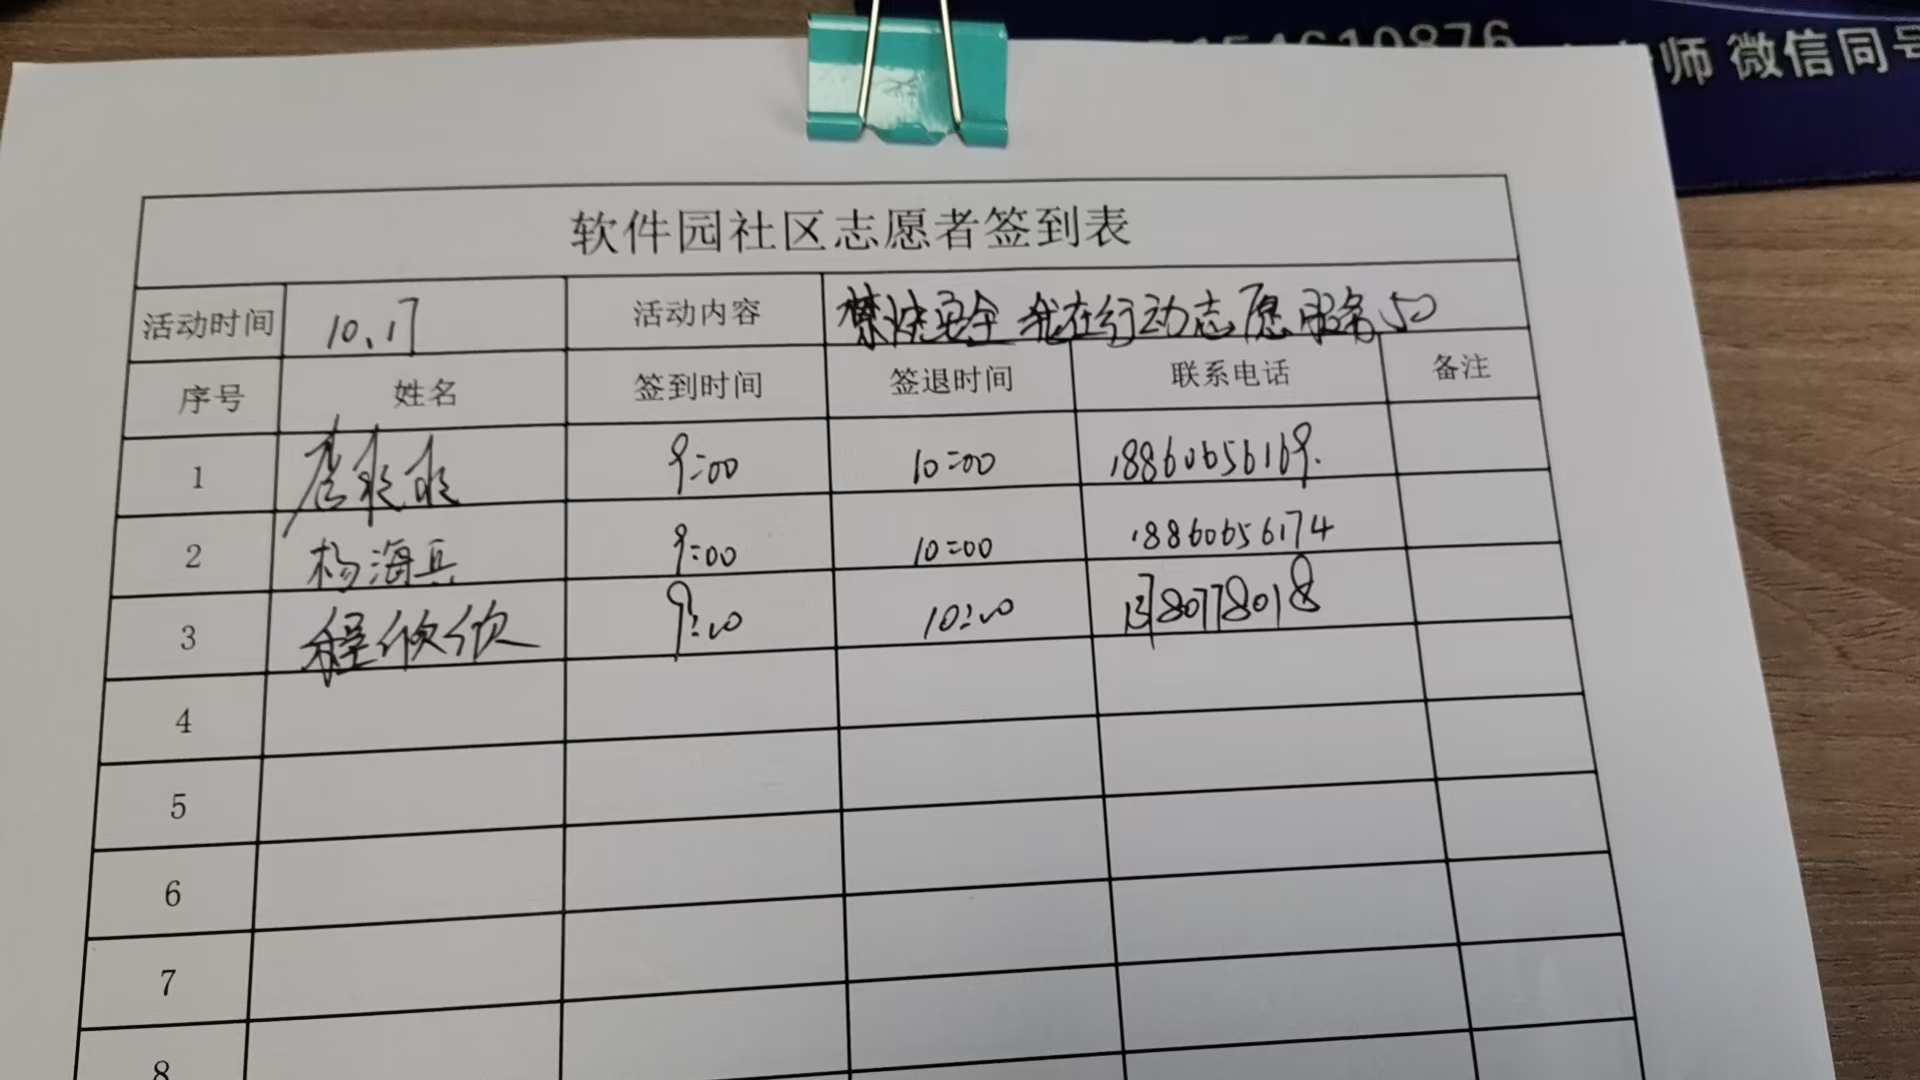 4619876
师 微信同号
软件园社区志愿者签到表
活动时间 10.17 活动内容 禁 安全 我在行动志愿服务50
序号 姓名 签到时间 签退时间 联系电话 备注
1 9:00 10:00 18860656169.
2 杨海兵 9:00 10:00 18860656174
3 程欣欣 9:00 10:00
4
5
6
7
8